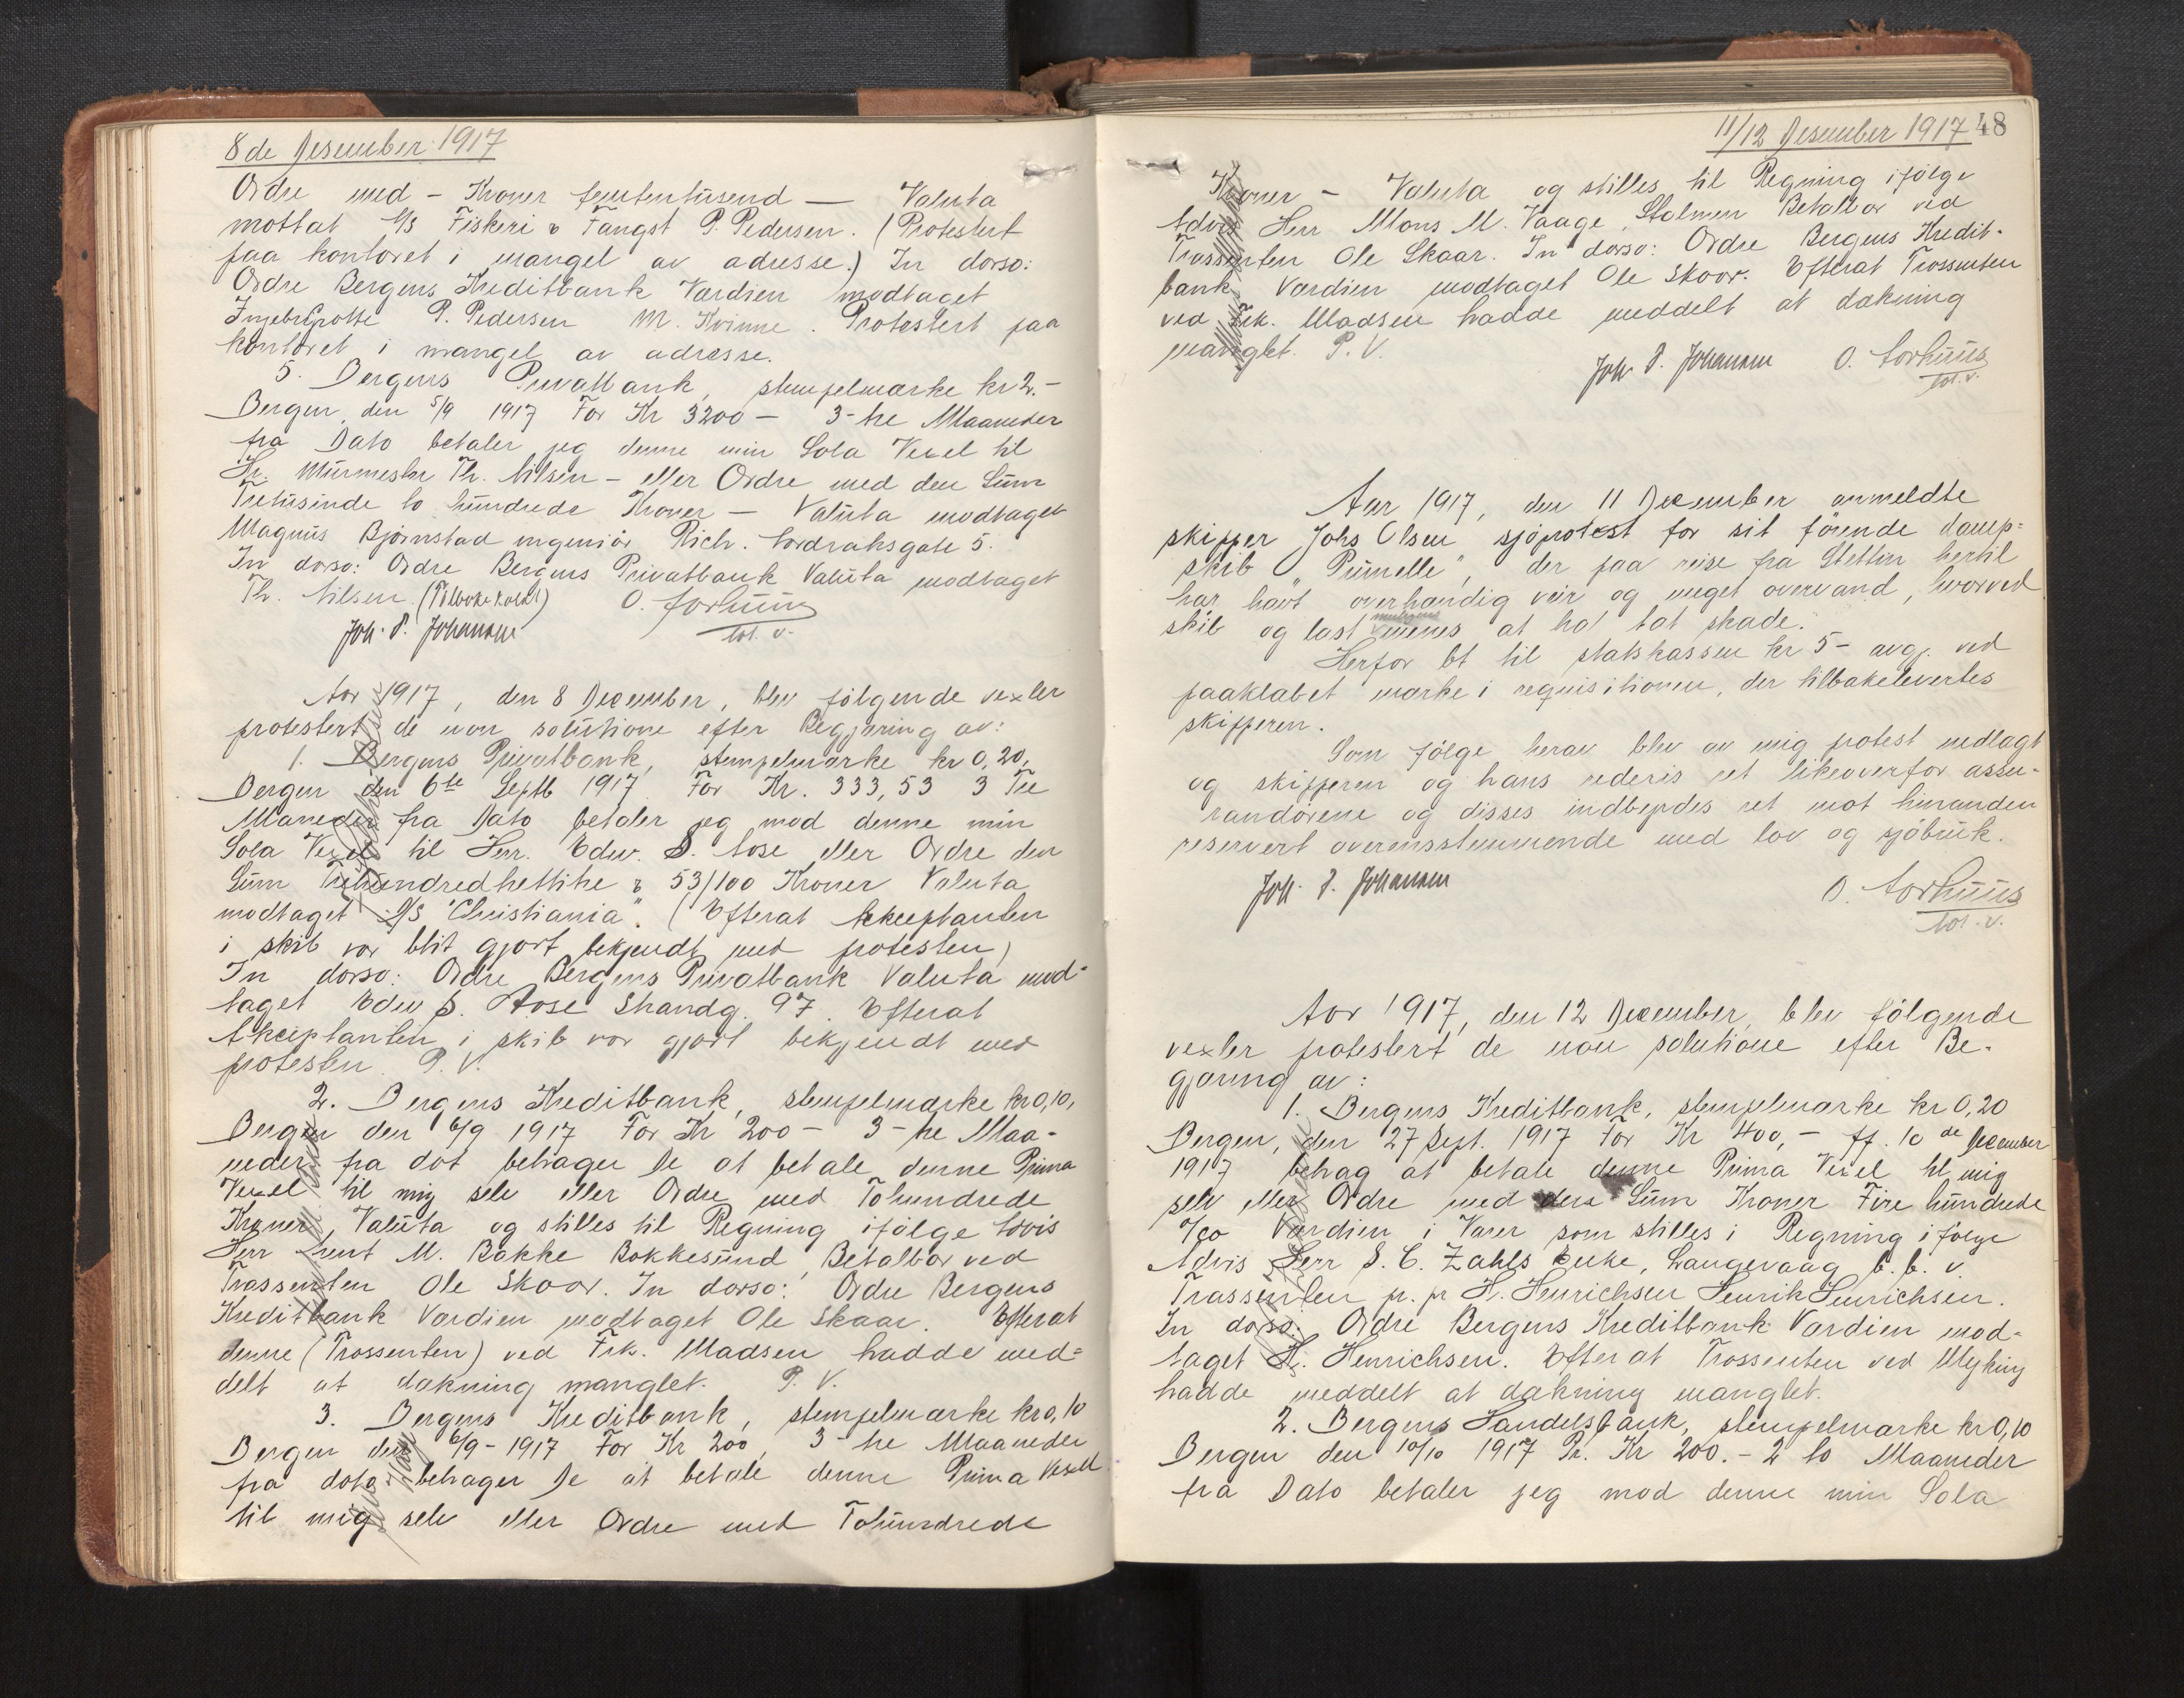 8de Desember 1917
Ordre med - Kroner femtentusend - Valuta
mottat A/S Fiskeri & Fangst P. Pedersen. (Protestert
paa kontoret i mangel av adresse.) In dorso:
Ordre Bergens Kreditbank Værdien modtaget
P. Pedersen M. Kvinne. Protestert paa
kontoret i mangel av adresse.
5. Bergens Privatbank, stempelmærke kr 2.-
Bergen, den 5/9 1917 For Kr 3200 - 3-tre Maaneder
fra Dato betaler jeg denne min Sola Vexel til
Hr. Murmester Th. Nilsen - eller Ordre med den Sum
Tretusinde to hundrede Kroner - Valuta modtaget
Magnus Bjørnstad ingeniør Rich. Nordraksgate 5.
In dorso: Ordre Bergens Privatbank Valuta modtaget
Th. Nilsen
Joh. P. Johansen
Aar 1917, den 8 December, blev følgende vexler
protestert de non solutione efter Begjæring av:
1. Bergens Privatbank, stempelmærke kr 0,20,
Bergen den 6te Septb 1917. For Kr. 333,53 3 Tre
Maneder fra Dato betaler jeg mod denne min
Sola Vexel til Herr. Edw. B. Aase eller Ordre den
Sum Trehundredhettitre & 53/100 Kroner Valuta
modtaget D/S "Christiania". (Efterat Akceptanten
i skib var blit gjort bekjendt med protesten)
In dorso: Ordre Bergens Privatbank Valuta mod-
taget Edw B. Aase Strandg. 97. Efterat
Akceptanten i skib var gjort bekjendt med
protesten. P. V.
2. Bergens Kreditbank, stempelmærke kr 0,10,
Bergen den 6/9 1917 For Kr 200 - 3-tre Maa-
neder fra dat behager De at betale denne Prima
Vexel til mig selv eller Ordre med Tohundrede
Kroner, Valuta og stilles til Regning ifølge Advis
Herr M. Bakke Bakkesund, Betalbar ved
Trassenten Ole Skaar. In dorso: Ordre Bergens
Kreditbank Værdien modtaget Ole Skaar. Efterat
denne (Trassenten) ved Frk. Madsen hadde med-
delt at dækning manglet. P. V.
3. Bergens Kreditbank, stempelmærke kr 0,10
Bergen den 6/9 - 1917 For Kr 200, 3-tre Maaneder
fra dato behager De at betale denne Prima Vexel
til mig selv eller Ordre med Tohundrede
11/12 Desember 1917 48
Kroner - Valuta og stilles til Regning ifølge
Advis Herr Mons M. Vaage, Stolmen Betalbar ved
Trassenten Ole Skaar. In dorso: Ordre Bergens Kredit-
bank, Værdien modtaget Ole Skaar. Efterat Trassenten
ved Frk. Madsen hadde meddelt at dækning
manglet. P. V.
Joh. P. Johansen O. Aarhuus
Aar 1917, den 11 December anmeldte
skipper Johs Olsen sjøprotest for sit førende damp-
skib "Prunelle", der paa reise fra Stettin hertil
har havt overhændig veir og meget overvand, hvorved
skib og last at ha tat skade.
Herfor bt til statskassen kr 5 - avgj. ved
paaklæbet mærke i requisitionen, der tilbakelevertes
skipperen.
Som følge herav blev av mig protest nedlagt
og skipperen og hans rederis ret likeoverfor assu-
randørene og disses indbyrdes ret mot hinanden
reservert overensstemmende med lov og sjøbruk.
Joh. P. Johansen O. Aarhuus
Aar 1917, den 12 December, blev følgende
vexler protestert de non solutione efter Be-
gjæring av:
1. Bergens Kreditbank, stempelmærke kr 0,20
Bergen, den 27 Sept. 1917 For Kr 400,- pr. 10de December
1917 behag at betale denne Prima Vexel til mig
selv eller Ordre med den Sum Kroner Fire hundrede
Værdien i Varer som stilles i Regning ifølge
Advis Herr S. C. Zahls Enke, Langevaag b. b. v.
Trassenten pr. pr H. Henrichsen Henrik Henrichsen.
In dorso: Ordre Bergens Kreditbank Værdien mod-
taget H. Henrichsen. Efter at Trassenten ved Myking
hadde meddelt at dækning manglet.
2. Bergens Handelsbank, stempelmærke kr 0,10
Bergen den 10/10 1917 Pr. Kr 200.- 2 to Maaneder
fra Dato betaler jeg mod denne min Sola